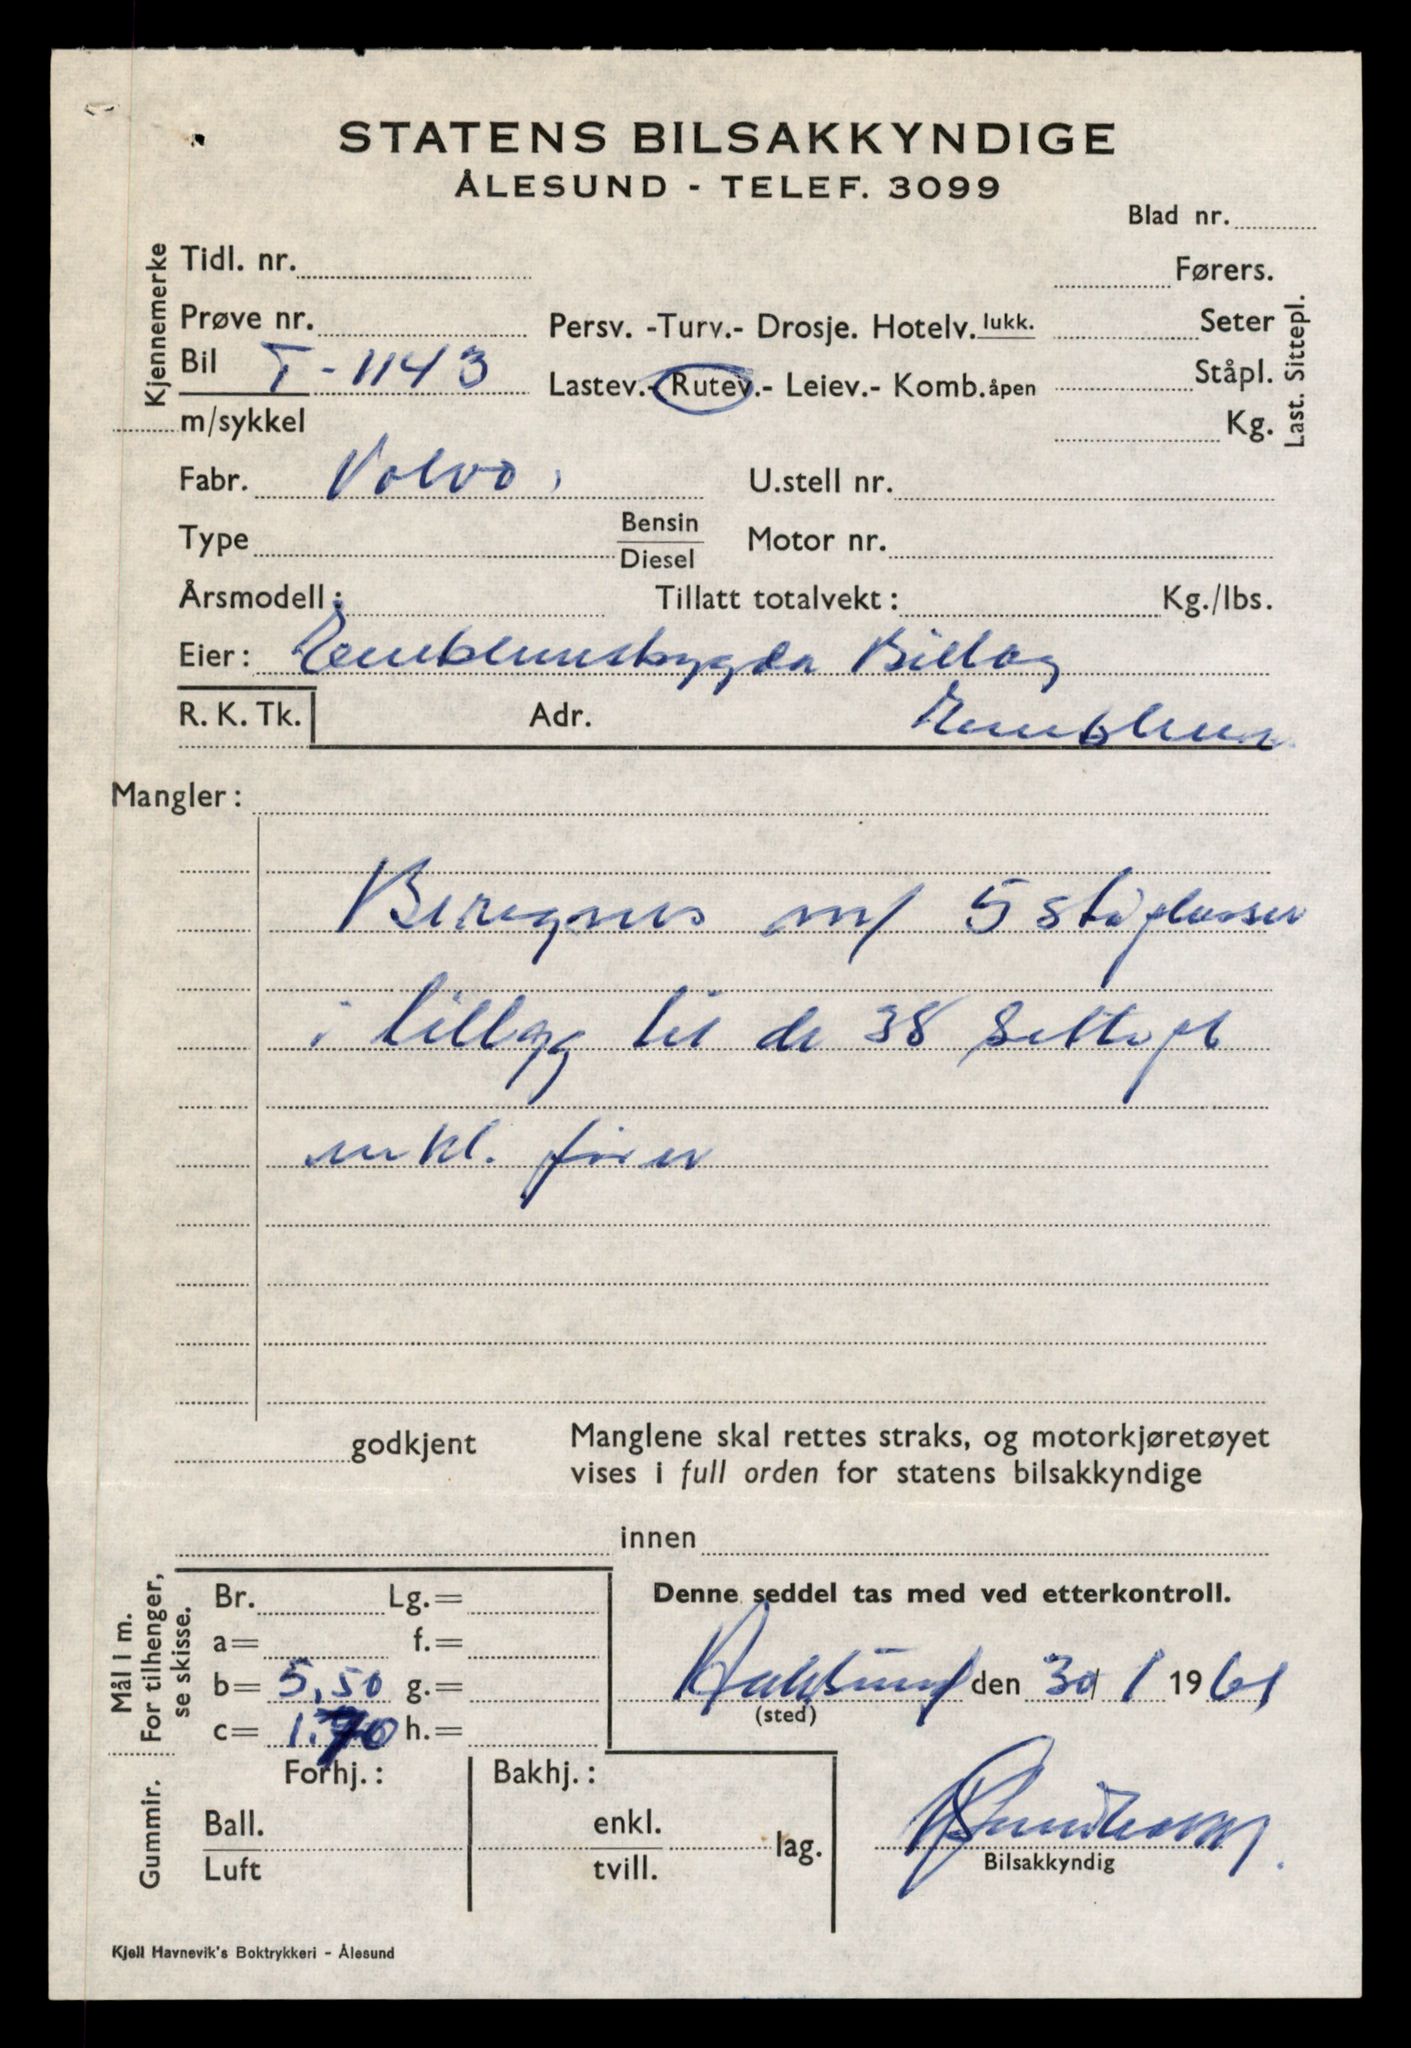 STATENS BILSAKKYNDIGE
ÅLESUND - TELEF. 3099
Blad nr.
Kjennemerke
Tidl. nr.
Førers.
Prøve nr.
Persv. -Turv.- Drosje. Hotelv. lukk.
Seter
Bil T - 1143
Lastev.- Rutev.- Leiev.- Komb. åpen
Ståpl.
m/sykkel
Kg.
Last. Sittepl.
Fabr. Volvo
U.stell nr.
Type
Bensin
Diesel
Motor nr.
Årsmodell:
Tillatt totalvekt:
Kg./lbs.
Eier: Emblemsbygda Billag
R. K. Tk.
Adr. Emblem
Mangler:
Beregnes m/ 5 ståplasser
i tillegg til de 38 sittepl
inkl. fører
godkjent
Manglene skal rettes straks, og motorkjøretøyet
vises i full orden for statens bilsakkyndige
innen
Mål i m.
For tilhenger,
se skisse.
Br.
Lg.=
a=
f.=
b= 5,50
g.=
c= 1.70
h.=
Denne seddel tas med ved etterkontroll.
den 30/1 1961
(sted)
Gummir.
Forhj.:
Bakhj.:
Ball.
Luft
enkl.
tvill.
lag.
Bilsakkyndig
Kjell Havnevik's Boktrykkeri - Ålesund